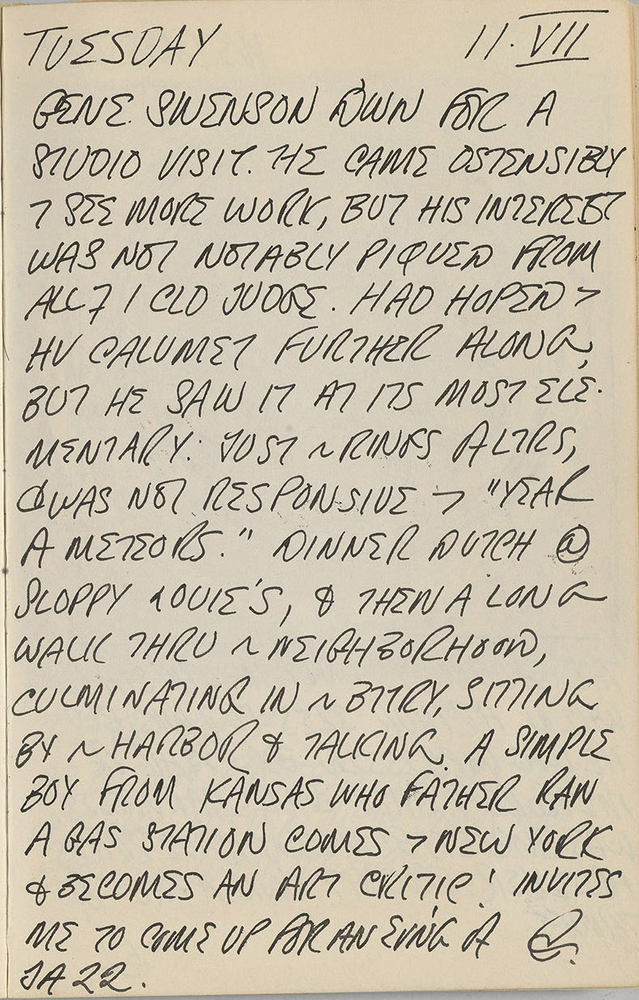 TUESDAY 11.VII
GENE SWENSON DWN FOR A
STUDIO VISIT. HE CAME OSTENSIBLY
> SEE MORE WORK, BUT HIS INTEREST
WAS NOT NOTABLY PIQUED FROM
ALL > I CLD JUDGE. HAD HOPED >
HV CALUMET FURTHER ALONG,
BUT HE SAW IT AT ITS MOST ELE-
MENTARY: JUST ~ RINGS ALTRS,
& WAS NOT RESPONSIVE > "YEAR
A METEORS." DINNER DUTCH @
SLOPPY LOUIE'S, & THEN A LONG
WALK THRU ~ NEIGHBORHOOD,
CULMINATING IN ~ BTTRY, SITTING
BY ~ HARBOR & TALKING. A SIMPLE
BOY FROM KANSAS WHO FATHER RAN
A GAS STATION COMES > NEW YORK
& BECOMES AN ART CRITIC! INVITES
ME TO COME UP FOR AN EVN'G A
JAZZ.